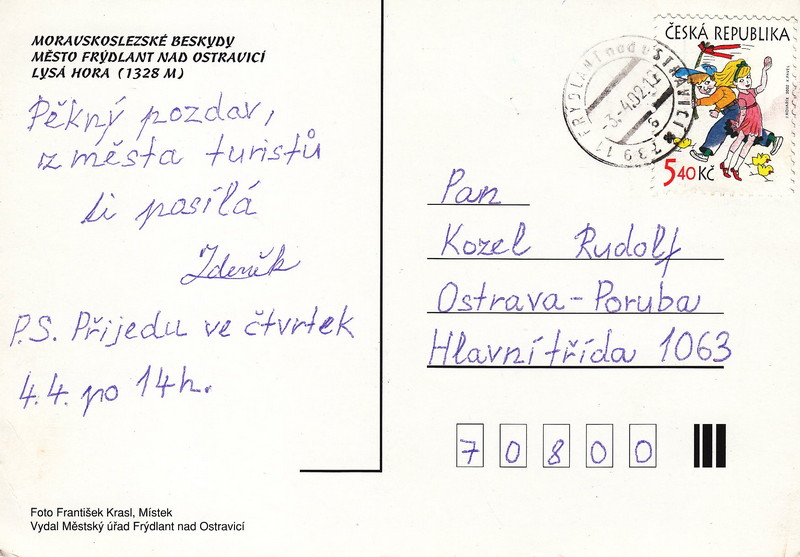 MORAVSKOSLEZSKÉ BESKYDY
MĚSTO FRÝDLANT NAD OSTRAVICÍ
LYSÁ HORA (1328 M)
Pěkný pozdav,
z města turistů
ti posílá
Zdeněk
P.S. Přijedu ve čtvrtek
4.4. po 14h.
Foto František Krasl, Místek
Vydal Městský úřad Frýdlant nad Ostravicí
ČESKÁ REPUBLIKA
5,40 KČ
FRÝDLANT nad OSTRAVICÍ
-3.-4.02.
739 11
Pan
Kozel Rudolf
Ostrava-Poruba
Hlavní třída 1063
70800